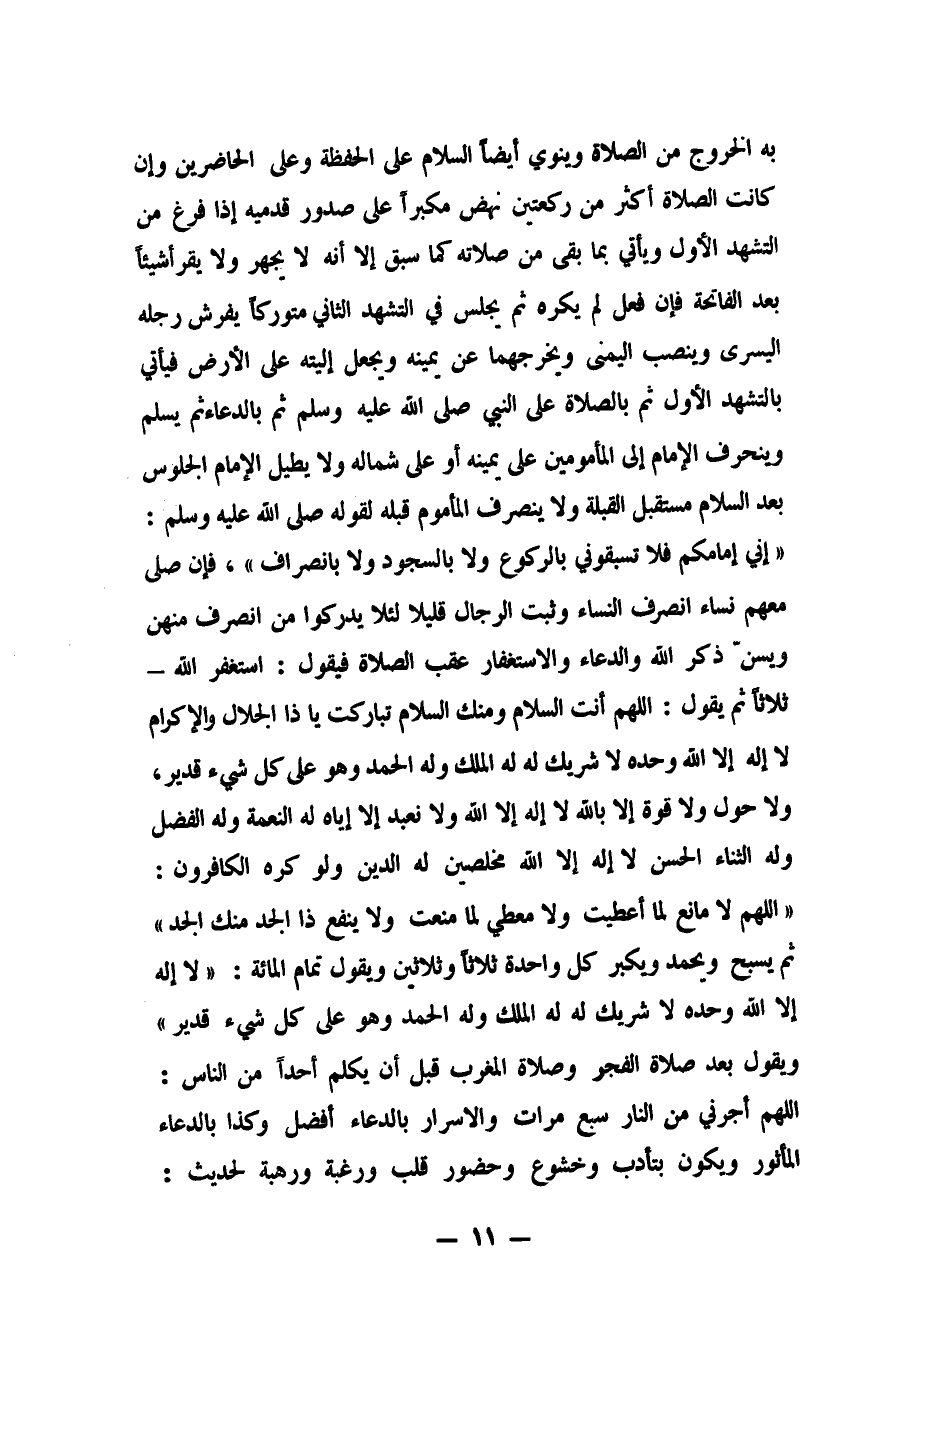 به الخروج من الصلاة وينوي أيضاً السلام على الحفظة وعلى الحاضرين وإن
كانت الصلاة أكثر من ركعتين نهض مكبراً على صدور قدميه إذا فرغ من
التشهد الأول ويأتي بما بقى من صلاته كما سبق إلا أنه لا يجهر ولا يقرأ شيئاً
بعد الفاتحة فإن فعل لم يكره ثم يجلس في التشهد الثاني متوركاً يفرش رجله
اليسرى وينصب اليمنى ويخرجهما عن يمينه ويجعل إليته على الأرض فيأتي
بالتشهد الأول ثم بالصلاة على النبي صلى الله عليه وسلم ثم بالدعاء ثم يسلم
وينحرف الإمام إلى المأمومين على يمينه أو على شماله ولا يطيل الإمام الجلوس
بعد السلام مستقبل القبلة ولا ينصرف المأموم قبله لقوله صلى الله عليه وسلم :
« إني إمامكم فلا تسبقوني بالركوع ولا بالسجود ولا بانصراف » ، فإن صلى
معهم نساء انصرف النساء وثبت الرجال قليلا لئلا يدركوا من انصرف منهن
ويسنّ ذكر الله والدعاء والاستغفار عقب الصلاة فيقول : استغفر الله –
ثلاثاً ثم يقول : اللهم أنت السلام ومنك السلام تباركت يا ذا الجلال والإكرام
لا إله إلا الله وحده لا شريك له له الملك وله الحمد وهو على كل شيء قدير ،
ولا حول ولا قوة إلا بالله لا إله إلا الله ولا نعبد إلا إياه له النعمة وله الفضل
وله الثناء الحسن لا إله إلا الله مخلصين له الدين ولو كره الكافرون :
« اللهم لا مانع لما أعطيت ولا معطي لما منعت ولا ينفع ذا الجد منك الجد »
ثم يسبح ويحمد ويكبر كل واحدة ثلاثاً وثلاثين ويقول تمام المائة : « لا إله
إلا الله وحده لا شريك له له الملك وله الحمد وهو على كل شيء قدير »
ويقول بعد صلاة الفجر وصلاة المغرب قبل أن يكلم أحداً من الناس :
اللهم أجرني من النار سبع مرات والاسرار بالدعاء أفضل وكذا بالدعاء
المأثور ويكون بتأدب وخشوع وحضور قلب ورغبة ورهبة لحديث :
– ١١ –